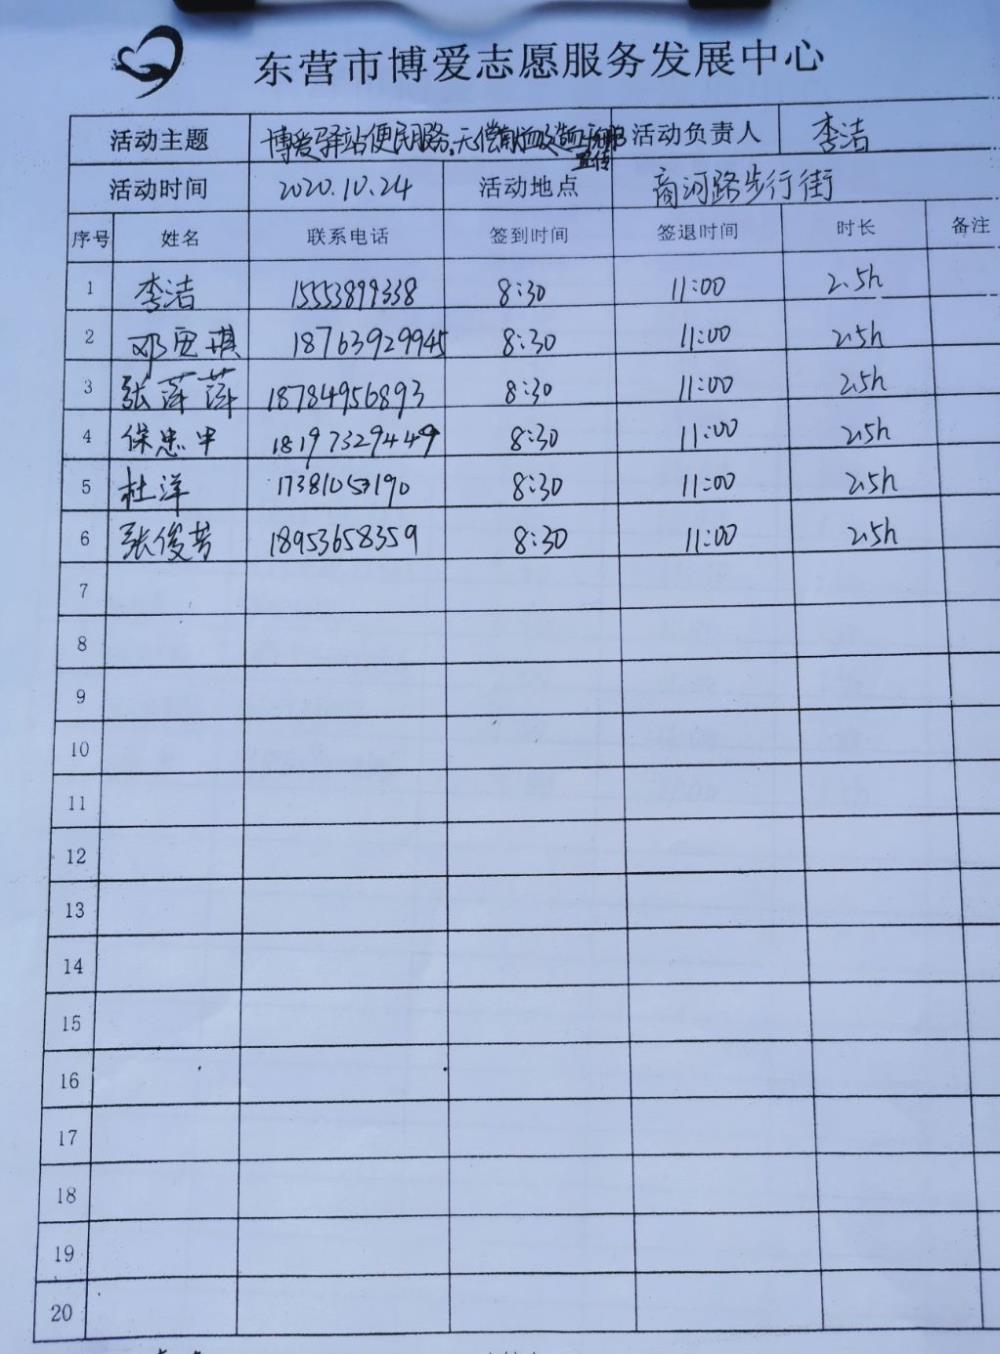 东营市博爱志愿服务发展中心
活动主题 博爱驿站便民服务、无偿献血及造血干细胞宣传 活动负责人 李洁
活动时间 2020.10.24 活动地点 商河路步行街
序号 姓名 联系电话 签到时间 签退时间 时长 备注
1 李洁 15553899338 8:30 11:00 2.5h
2 邓 琪 18763929945 8:30 11:00 2.5h
3 张萍萍 18784956893 8:30 11:00 2.5h
4 保忠中 18197329449 8:30 11:00 2.5h
5 杜洋 8:30 11:00 2.5h
6 张俊芳 18953658359 8:30 11:00 2.5h
7
8
9
10
11
12
13
14
15
16
17
18
19
20